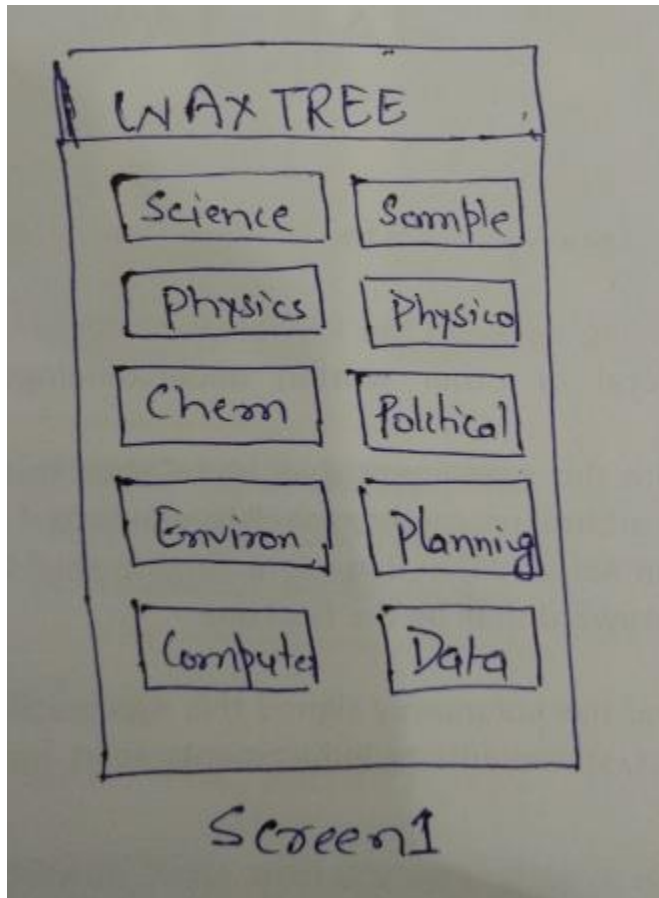 WAX TREE
Science Sample
Physics Physico
Chem Political
Environ Planning
Computer Data
Screen1